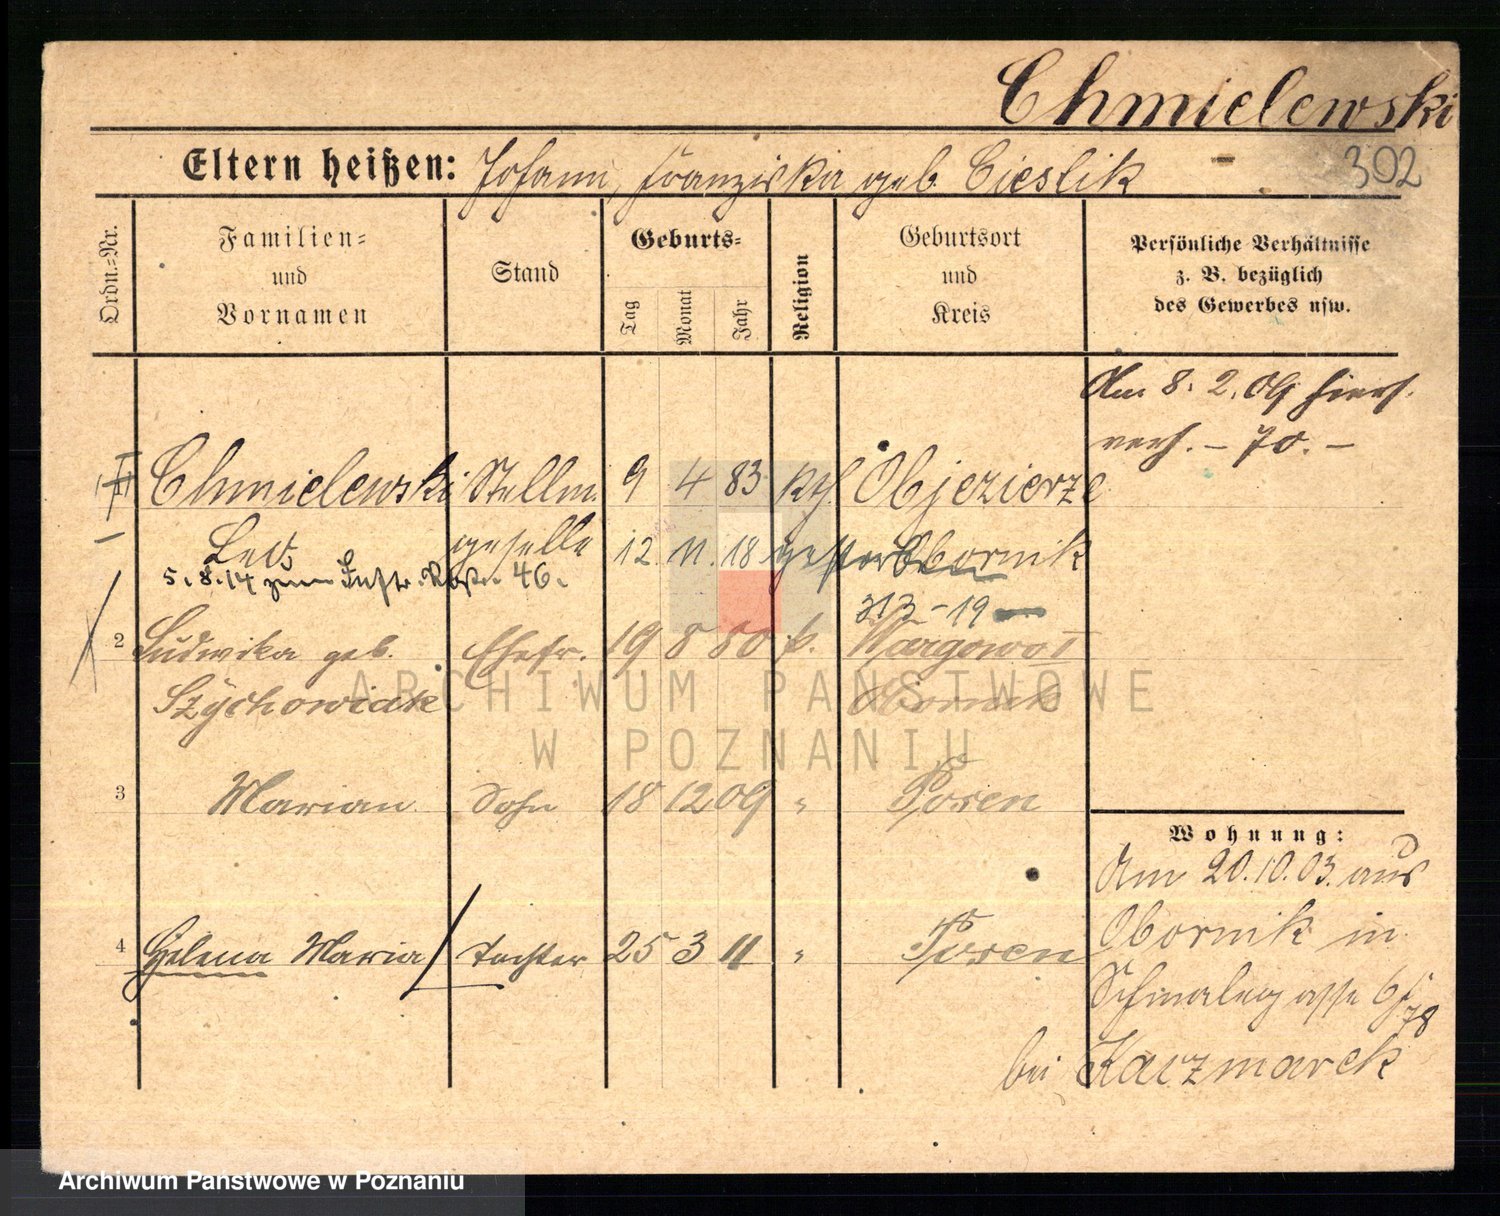 Chmielewski
302
Eltern heißen: Johann, Franziska geb. Cieslik
Ordn.=Nr.
Familien=
und
Vornamen
Stand
Geburts=
Tag
Monat
Jahr
Religion
Geburtsort
und
Kreis
Persönliche Verhältnisse
z. B. bezüglich
des Gewerbes usw.
Am 8. 2. 09 hiers.
verh. – 70. –
Chmielewski Stellm. 9 4 83 kth. Objezierze
Leo geselle 12 11 18 gestorben Obornik
5. 8. 14 zum Inftr. Rgt. 46.
313 – 19
2 Ludwika geb. Ehefr. 19 8 80 k. Wargowo
Szychowiak Obornik
3 Marian Sohn 18 12 09 " Posen
4 Helena Maria Tochter 25 3 11 " Posen
Wohnung:
Am 20.10.03. aus
Obornik in
78
bei Kaczmarek
ARCHIWUM PAŃSTWOWE
W POZNANIU
Archiwum Państwowe w Poznaniu